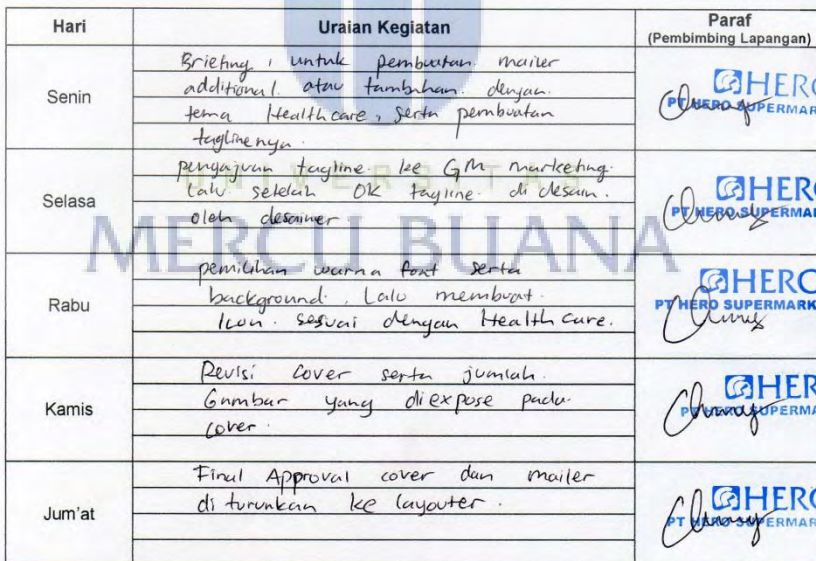 Hari
Uraian Kegiatan
Paraf
(Pembimbing Lapangan)
Senin
Briefing, untuk pembuatan mailer
additional atau tambahan dengan
tema Healthcare, serta pembuatan
taglinenya.
HERO
PT HERO SUPERMAR
Selasa
pengajuan tagline ke GM marketing.
Lalu setelah OK tagline di desain.
oleh desainer
HERO
PT HERO SUPERMAR
UNIVERSITAS
MERCU BUANA
Rabu
pemilihan warna font serta
background, Lalu membuat.
Icon sesuai dengan Health Care.
HERO
PT HERO SUPERMARK
Kamis
Revisi Cover serta jumlah.
Gambar yang diexpose pada.
cover.
HER
PT HERO SUPERMA
Jum'at
Final Approval cover dan mailer
di turunkan ke layouter.
HERO
PT HERO SUPERMAR